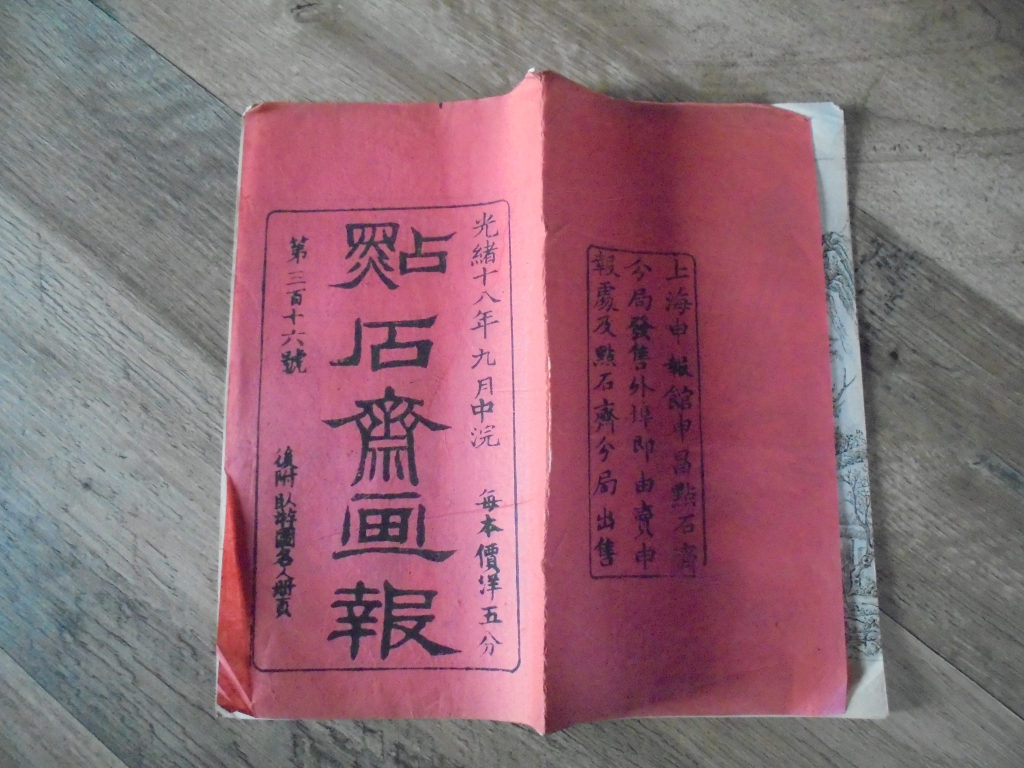 上海申報館申昌點石齋
分局發售外埠即由賣申
報處及點石齋分局出售
光緒十八年九月中浣 每本價洋五分
點石齋画報
第三百十六號 後附臥游圖名人册頁